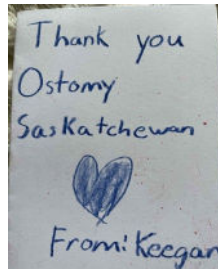 Thank you
Ostomy
Saskatchewan
From: Keegan